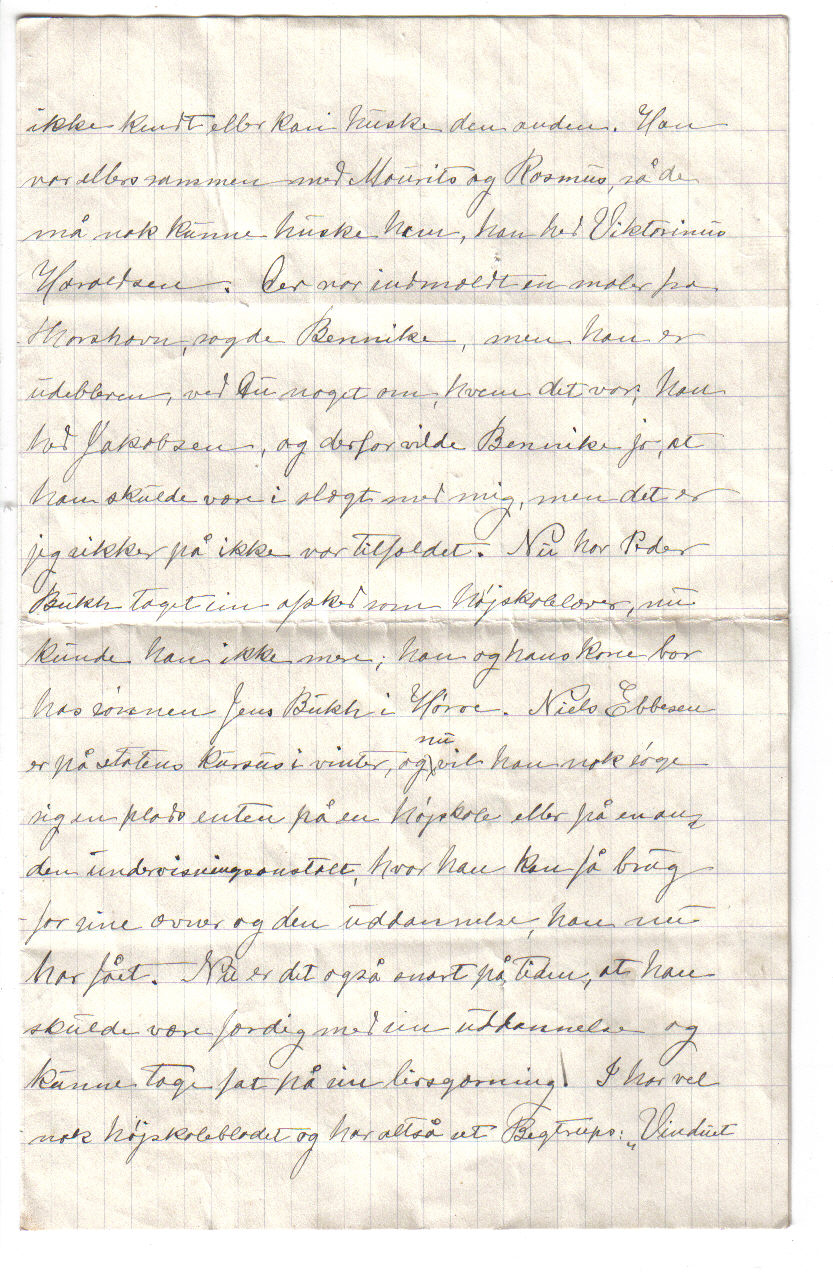 ikke kendt eller kan huske den anden. Han
var ellers sammen med Mourits og Rasmus, så de
må nok kunne huske ham, han hed Viktorinus
Haraldsen. Der var indmeldt en maler fra
Thorshavn, sagde Bennike, men han er
udebleven, ved Du noget om, hvem det var; han
hed Jakobsen, og derfor vilde Bennike jo, at
han skulde være i slægt med mig, men det er
jeg sikker på ikke var tilfældet. Nu har Peder
Bukh taget sin afsked som højskolelærer, nu
kunde han ikke mere; han og hans kone bor
hos sønnen Jens Bukh i Hørve. Niels Ebbesen
er på statens kursus i vinter, og nu vil han nok søge
sig en plads enten på en højskole eller på en an=
den undervisningsanstalt, hvor han kan få brug
for sine ævner og den uddannelse, han nu
har fået. Nu er det også snart på tiden, at han
skulde være færdig med sin uddannelse og
kunne tage fat på sin livsgærning! I har vel
nok højskolebladet og har altså set Begtrups: „Vinduet